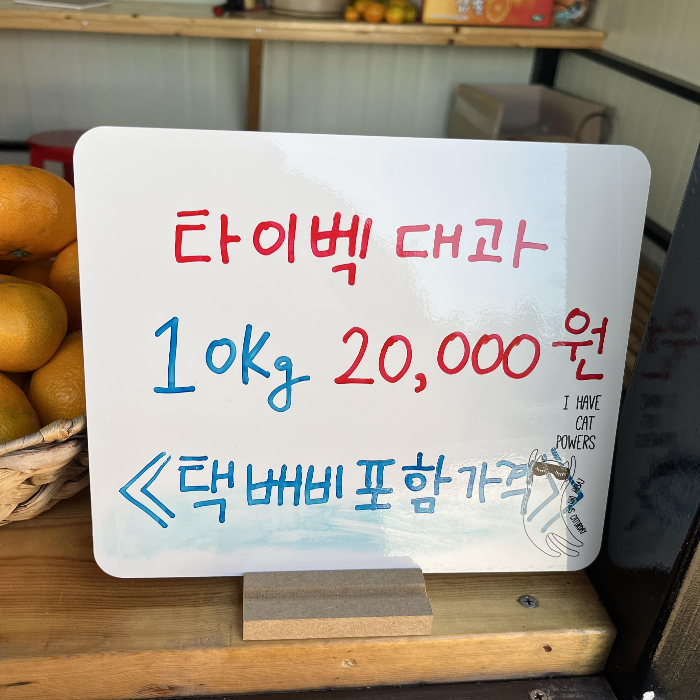 타이벡 대과
10Kg 20,000원
I HAVE
CAT
POWERS
《택배비포함가격》